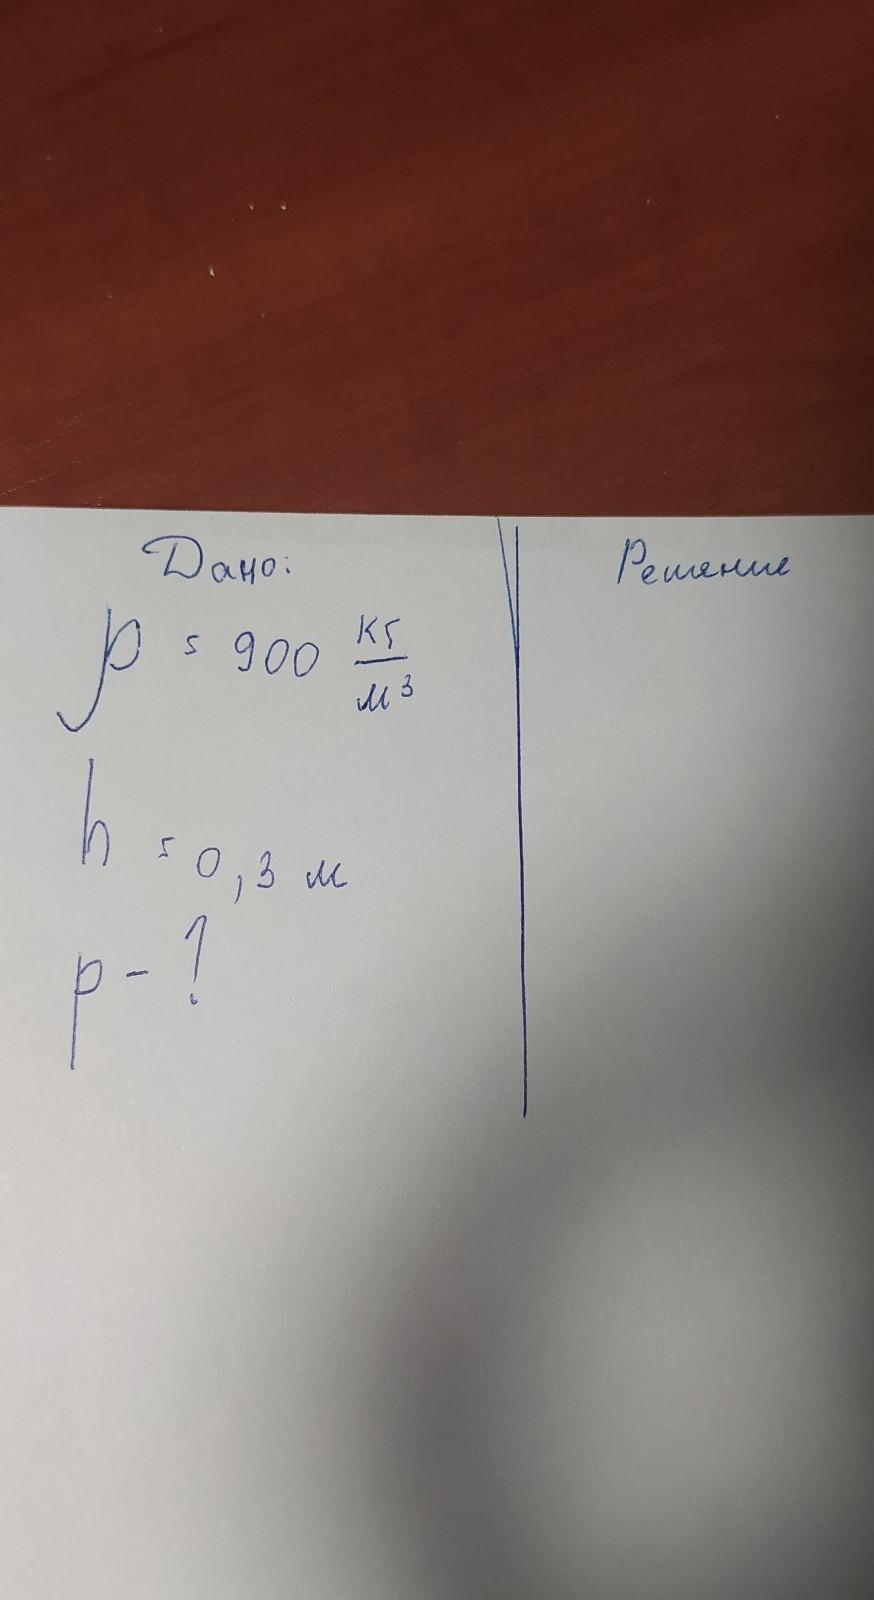 Дано:
ρ = 900 кг/м³
h = 0,3 м
p - ?
Решение